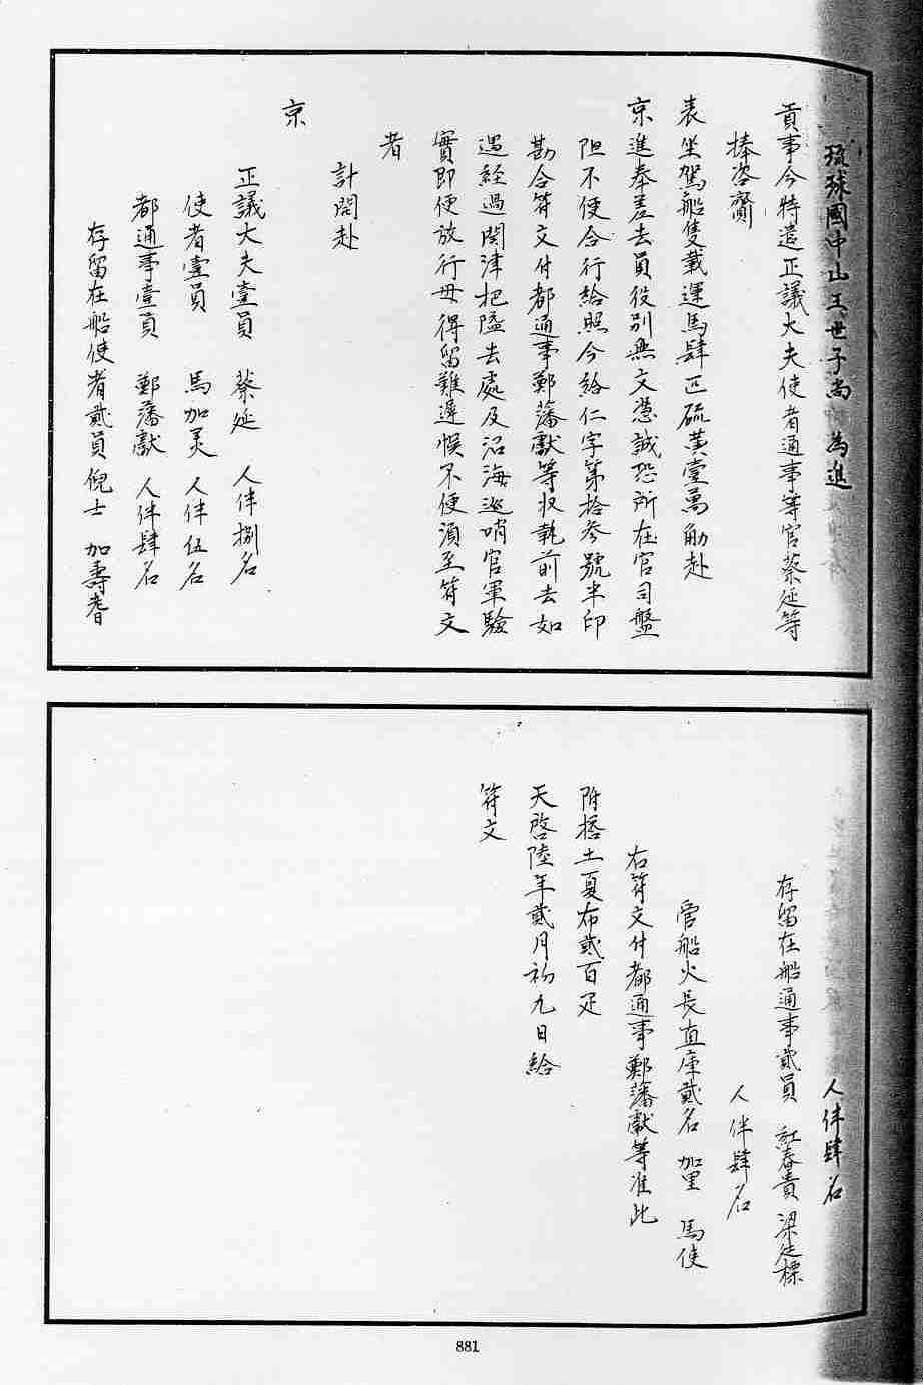 琉球國中山王世子尚 為進
貢事今特遣正議大夫使者通事等官蔡延等
捧咨賫
表坐駕船隻載運馬肆匹硫黃壹萬觔赴
京進奉差去員役別無文憑誠恐所在官司盤
阻不便合行給照今給仁字第拾參號半印
勘合符文付都通事鄭藩獻等收執前去如
遇經過関津把隘去處及沿海巡哨官軍驗
實即便放行毋得留難遲悞不便湏至符文
者
計開赴
京
正議大夫壹員 蔡延 人伴捌名
使者壹員 馬加美 人伴伍名
都通事壹員 鄭藩獻 人伴肆名
存留在船使者貳員 倪士 加壽耆
人伴肆名
存留在船通事貳員 紅春貴 梁廷標
人伴肆名
管船火長直庫貳名 加里 馬使
右符文付都通事鄭藩獻等准此
附搭土夏布貳百疋
天啓陸年貳月初九日給
符文
881